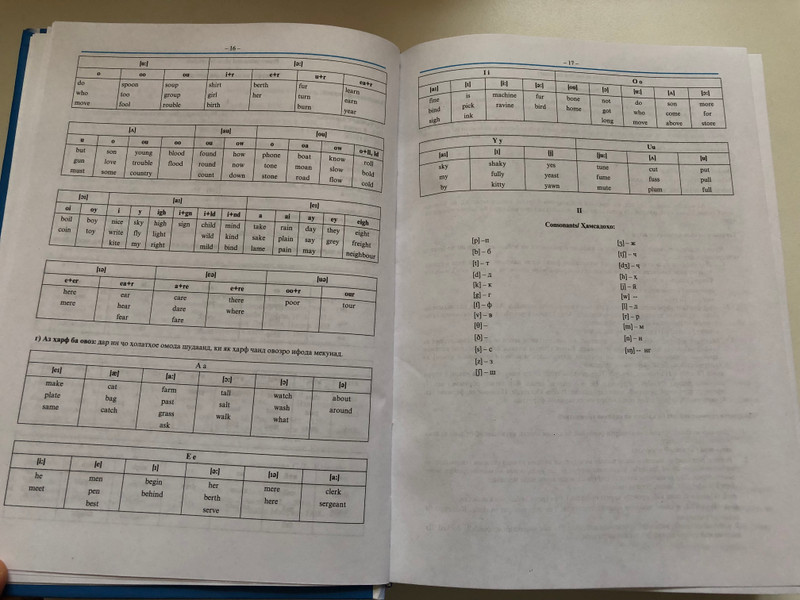 – 16 –
[u:] [ə:]
o oo ou i+r e+r u+r ea+r
do spoon soup shirt berth fur learn
who too group girl her turn earn
move fool rouble birth burn year
[ʌ] [au] [ou]
u o ou oo ou ow o oa ow o+ll, ld
but son young blood found how phone boat know roll
gun love trouble flood round now tone moan slow bold
must some country count down stone road flow cold
[ɔı] [aı] [eı]
oi oy i y igh i+gn i+ld i+nd a ai ay ey eigh
boil boy nice sky high sign child mind take rain day they eight
coin toy write fly light wild kind sake plain say grey freight
kite my right mild bind lame pain may neighbour
[ıə] [ɛə] [uə]
e+er ea+r a+re e+re oo+r our
here ear care there poor tour
mere hear dare where
fear fare
г) Аз харф ба овоз: дар ин чо ҳолатхое омода шудаанд, ки як ҳарф чанд овозро ифода мекунад.
A a
[eı] [æ] [a:] [ɔ:] [ɔ] [ə]
make cat farm tall watch about
plate bag past salt wash around
same catch grass walk what
ask
E e
[i:] [e] [ı] [ə:] [ıə] [a:]
he men begin her mere clerk
meet pen behind berth here sergeant
best serve
– 17 –
I i O o
[aı] [ı] [i:] [ə:] [ou] [ɔ] [u:] [ʌ] [ɔ:]
fine is machine fur bone not do son more
bind pick ravine bird home got who come for
sigh ink long move above store
Y y U u
[aı] [ı] [j] [ju:] [ʌ] [u]
sky shaky yes tune cut put
my fully yeast fume fuss pull
by kitty yawn mute plum full
II
Consonants/ Хамсадохо:
[p] – п [ʒ] – ж
[b] – б [tʃ] – ч
[t] – т [dʒ] – ҷ
[d] – д [h] – ҳ
[k] – к [j] – й
[g] – г [w] –
[f] – ф [l] – л
[v] – в [r] – р
[θ] – [m] – м
[ð] – [n] – н
[s] – с [ŋ] – нг
[z] – з
[ʃ] – ш